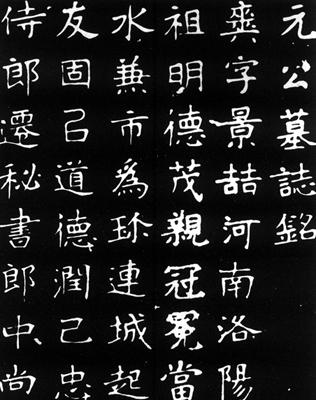 元公墓誌銘
爽字景喆河南洛陽
祖明德茂親冠冕當
水兼市為珎連城起
友固㠯道德潤己忠
侍郎遷秘書郎中尚